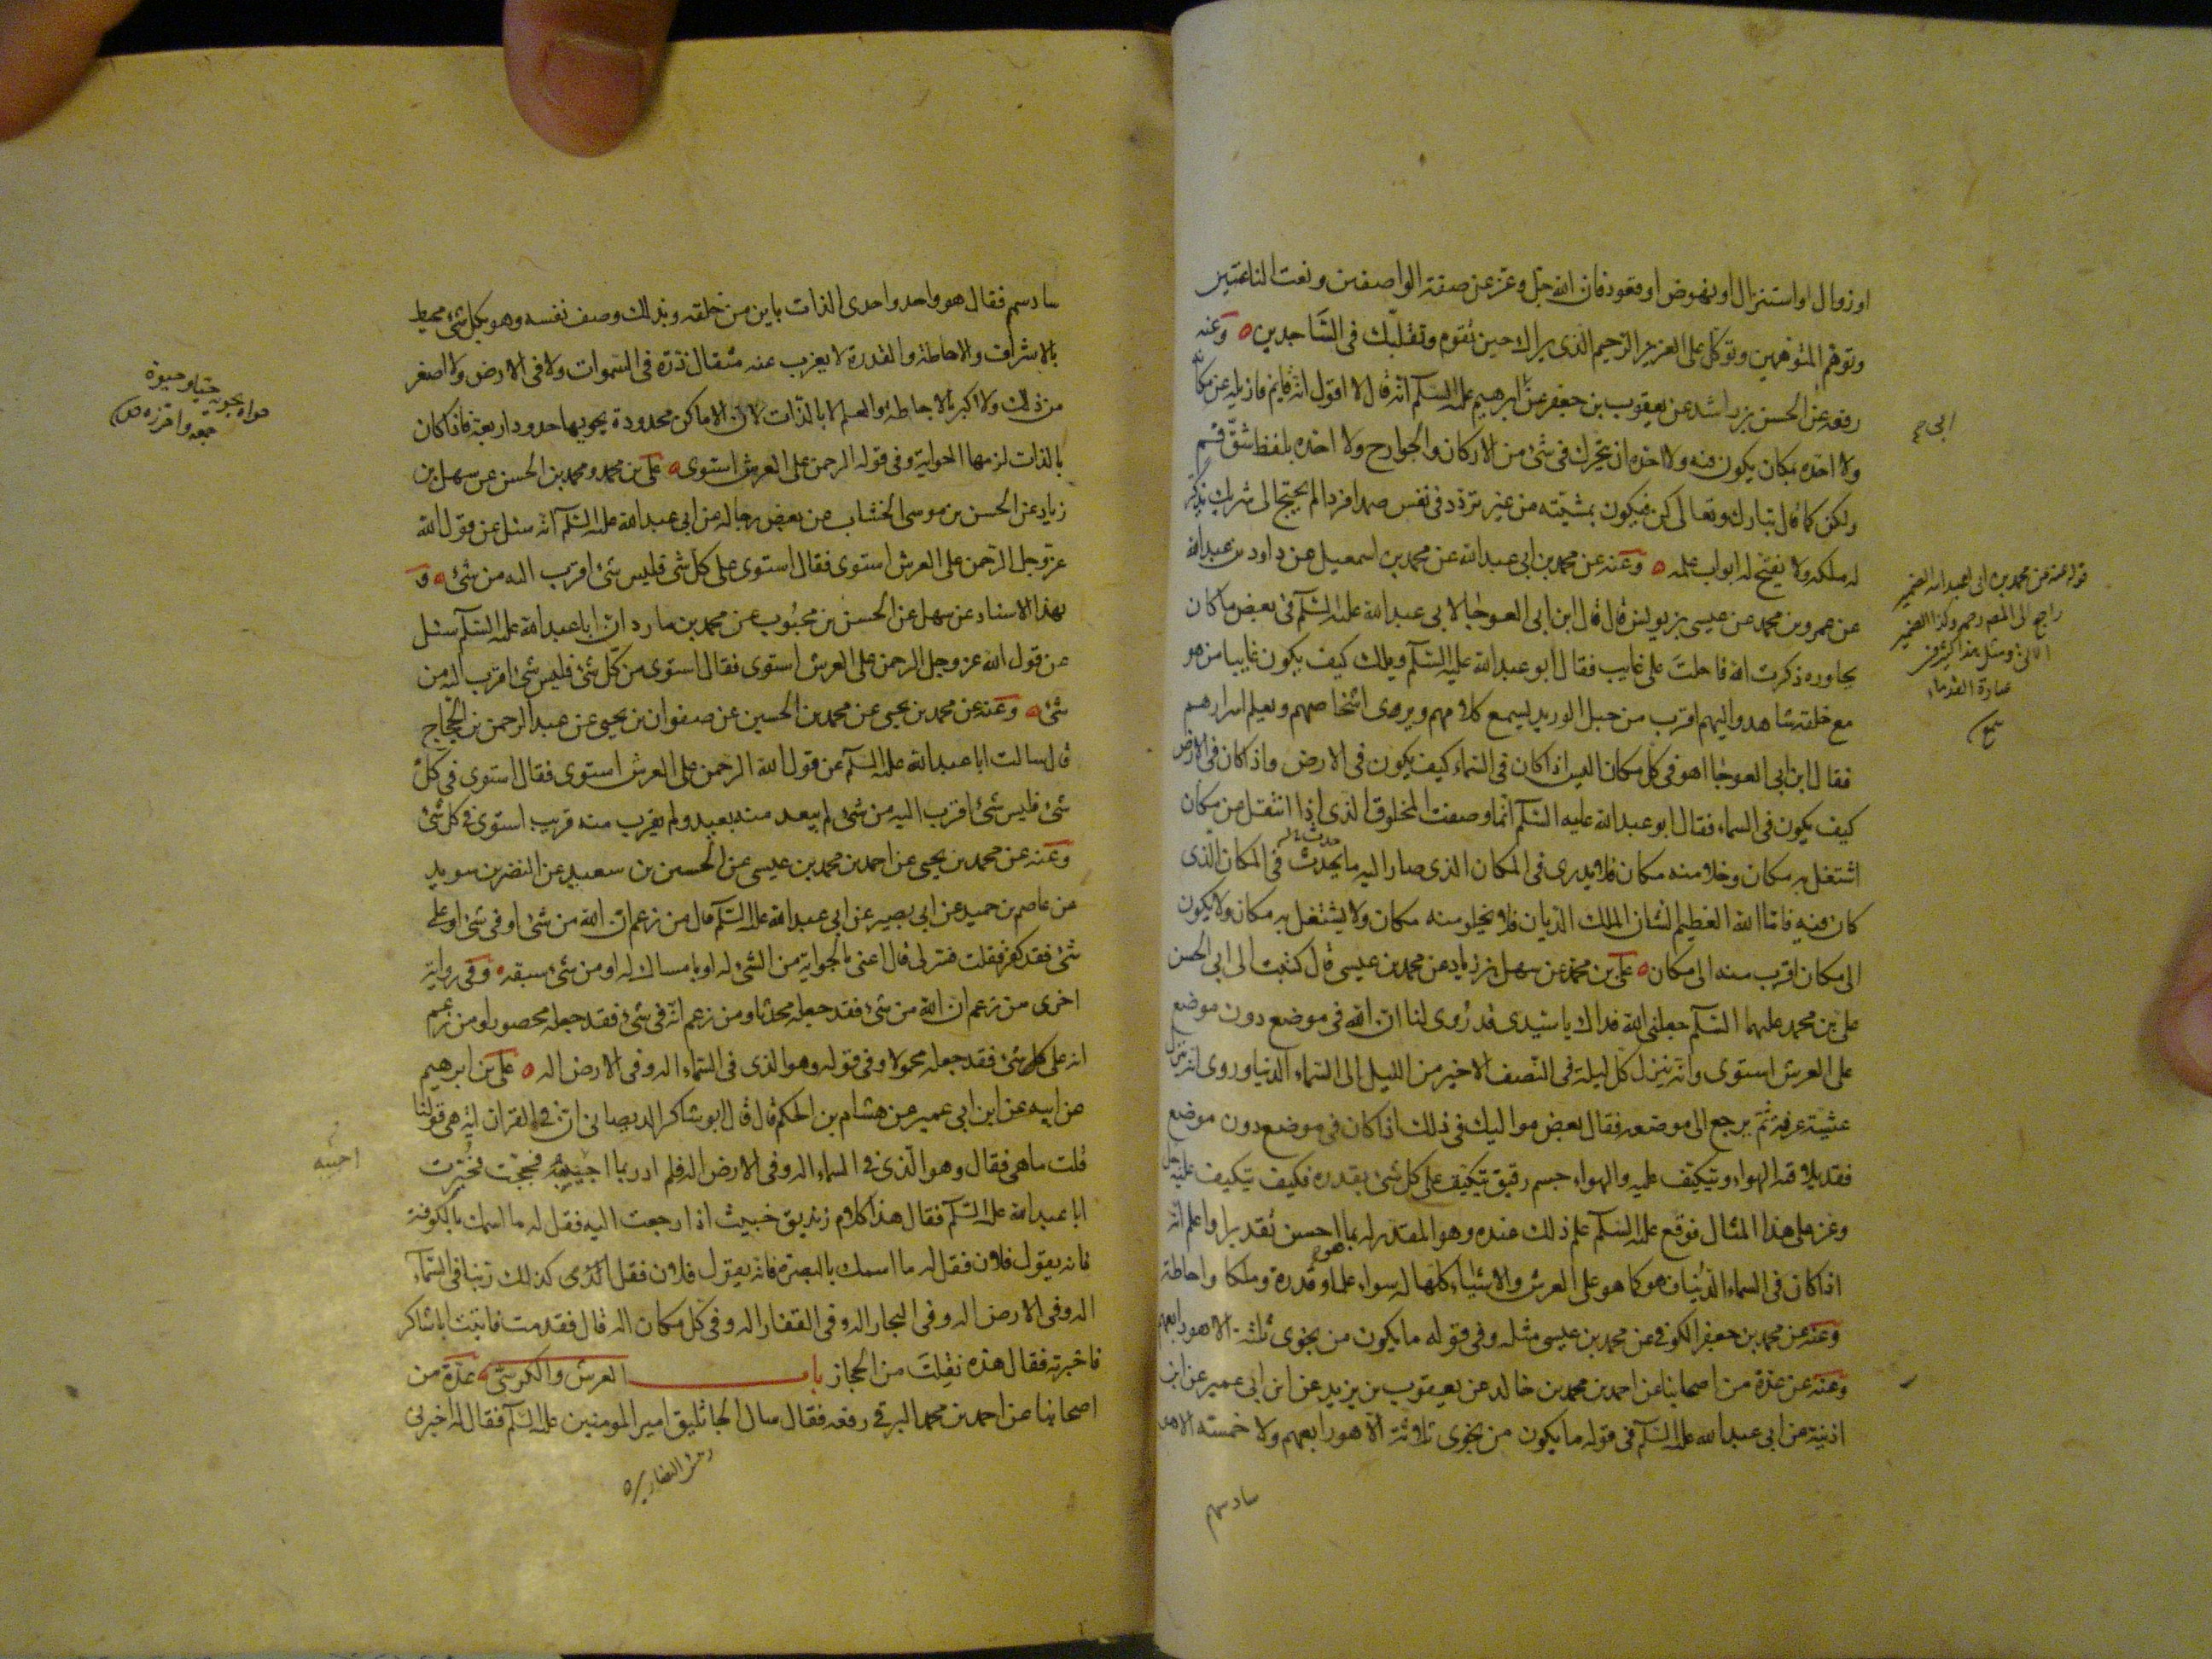 او زوال او استنزال او نهوض او قعود فان الله جل وعز عن صفة الواصفين ونعت الناعتين
وتوهم المتوهمين وتوكل على العزيز الرحيم الذى يراك حين تقوم وتقلبك فى الساجدين وعنه
رفعه عن الحسن بن راشد عن يعقوب بن جعفر عن ابرهيم علیه السلم انه قال لا اقول انه قايم فازيله عن مكانه
ابى
ولا احده بمكان يكون فيه ولا احده ان يتحرك فى شئ من الاركان والجوارح ولا احده بلفظ شق فم
ولكن كما قال تبارك وتعالى كن فيكون بمشيته من غير تردد فى نفس صمدا فردا لم يحتج الى شريك يذكر
له ملكه ولا يفتح له ابواب علمه وعنه عن محمد بن ابى عبدالله عن محمد بن اسمعيل عن داود بن عبدالله
قوله عنه عن محمد بن ابى عبد الله الضمير
راجع الى المصم رحمه وكذا الضمير
الآتى ومثل هذا كثير فى
عبارة القدماء
سمع
عن عمرو بن محمد عن عيسى بن يونس قال قال ابن ابى العوجا لابى عبدالله علیه السلم فى بعض ما كان
يحاوره ذكرت الله فاحلت على غايب فقال ابو عبدالله عليه السلم ويلك كيف يكون غايبا من هو
مع خلقه شاهد واليهم اقرب من حبل الوريد يسمع كلامهم ويرى اشخاصهم ويعلم اسرارهم
فقال ابن ابى العوجا اهو فى كل مكان اليس اذا كان فى السماء كيف يكون فى الارض واذا كان فى الارض
كيف يكون فى السماء فقال ابو عبدالله عليه السلم انما وصفت المخلوق الذى اذا انتقل من مكان
اشتغل به مكان وخلا منه مكان فلا يدرى فى المكان الذى صار اليه ما يحدث فى المكان الذى
كان فيه فاما الله العظيم الشان الملك الديان فلا يخلو منه مكان ولا يشتغل به مكان ولا يكون
الى مكان اقرب منه الى مكان على بن محمد عن سهل بن زياد عن محمد بن عيسى قال كتبت الى ابى الحسن
على بن محمد عليهما السلم جعلنى الله فداك يا سيدى قد روى لنا ان الله فى موضع دون موضع
على العرش استوى وانه ينزل كل ليلة فى النصف الاخير من الليل الى السماء الدنيا وروى انه ينزل
عشية عرفة ثم يرجع الى موضعه فقال بعض مواليك فى ذلك اذا كان فى موضع دون موضع
فقد يلاقيه الهواء ويتكيف عليه والهواء جسم رقيق يتكيف على كل شئ بقدره فكيف يتكيف عليه جل
وعز على هذا المثال فوقع علیه السلم علم ذلك عنده وهو المقدر له بما هو احسن تقديرا واعلم انه
اذا كان فى السماء الدنيا فهو كما هو على العرش والاشياء كلها له سواء علما وقدرة وملكا واحاطة
وعنه عن محمد بن جعفر الكوفى عن محمد بن عيسى مثله وفى قوله ما يكون من نجوى ثلثة الا هو رابعهم
وعنه عن عدة من اصحابنا عن احمد بن محمد بن خالد عن يعقوب بن يزيد عن ابن ابى عمير عن ابن
اذينة عن ابى عبدالله علیه السلم فى قوله ما يكون من نجوى ثلاثة الا هو رابعهم ولا خمسة الا هو
سادسهم
سادسهم فقال هو واحد واحدى الذات باين من خلقه وبذلك وصف نفسه وهو بكل شئ محيط
بالاشراف والاحاطة والقدرة لا يعزب عنه مثقال ذرة فى السموات ولا فى الارض ولا اصغر
من ذلك ولا اكبر بالاحاطة والعلم لا بالذات لان الاماكن محدودة يحويها حدود اربعة فاذا كان
بالذات لزمها الحواية وفى قوله الرحمن على العرش استوى على بن محمد ومحمد بن الحسن عن سهل بن
زياد عن الحسن بن موسى الخشاب عن بعض رجاله عن ابى عبدالله علیه السلم انه سئل عن قول الله
عز وجل الرحمن على العرش استوى فقال استوى على كل شئ فليس شئ اقرب اليه من شئ و
بهذا الاسناد عن سهل عن الحسن بن محبوب عن محمد بن مارد ان ابا عبدالله علیه السلم سئل
عن قول الله عز وجل الرحمن على العرش استوى فقال استوى من كل شئ فليس شئ اقرب اليه من
شئ وعنه عن محمد بن يحيى عن محمد بن الحسين عن صفوان بن يحيى عن عبد الرحمن بن الحجاج
قال سالت ابا عبدالله علیه السلم عن قول الله الرحمن على العرش استوى فقال استوى فى كل
شئ فليس شئ اقرب اليه من شئ لم يبعد منه بعيد ولم يقرب منه قريب استوى فى كل شئ
وعنه عن محمد بن يحيى عن احمد بن محمد بن عيسى عن الحسين بن سعيد عن النضر بن سويد
عن عاصم بن حميد عن ابى بصير عن ابى عبدالله علیه السلم قال من زعم ان الله من شئ او فى شئ او على
شئ فقد كفر فقلت فسر لى قال اعنى بالحواية من الشئ له او بامساك له او من شئ سبقه وفى رواية
اخرى من زعم ان الله من شئ فقد جعله محدثا ومن زعم انه فى شئ فقد جعله محصورا ومن زعم
انه على كل شئ فقد جعله محمولا وفى قوله وهو الذى فى السماء اله وفى الارض اله على بن ابرهيم
عن ابيه عن ابن ابى عمير عن هشام بن الحكم قال قال ابو شاكر الديصانى ان فى القران اية هى قولنا
قلت ما هى فقال وهو الذى فى السماء اله وفى الارض اله فلم ادر بما اجيبه فحججت فخبرت
اجيبه
ابا عبدالله علیه السلم فقال هذا كلام زنديق خبيث اذا رجعت اليه فقل له ما اسمك بالكوفة
فانه يقول فلان فقل له ما اسمك بالبصرة فانه يقول فلان فقل كذلك ربنا فى السماء
اله وفى الارض اله وفى البحار اله وفى القفار اله وفى كل مكان اله قال فقدمت فاتيت ابا شاكر
فاخبرته فقال هذه نقلت من الحجاز باب العرش والكرسى عدة من
اصحابنا عن احمد بن محمد البرقى رفعه فقال سال الجاثليق امير المومنين علیه السلم فقال له اخبرنى